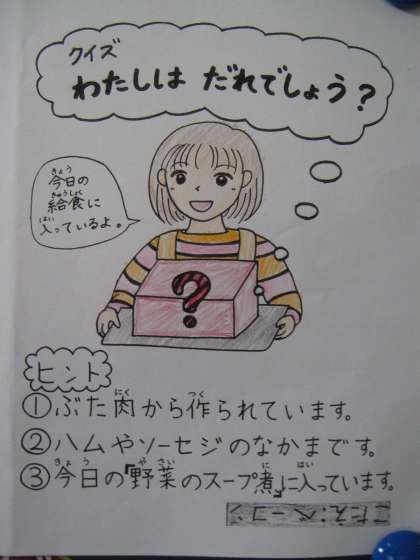 クイズ
わたしは だれでしょう?
今日の
給食に
入っているよ。
?
ヒント
①ぶた肉から作られています。
②ハムやソーセジのなかまです。
③今日の「野菜のスープ煮」に入っています。
こたえ:ベーコン